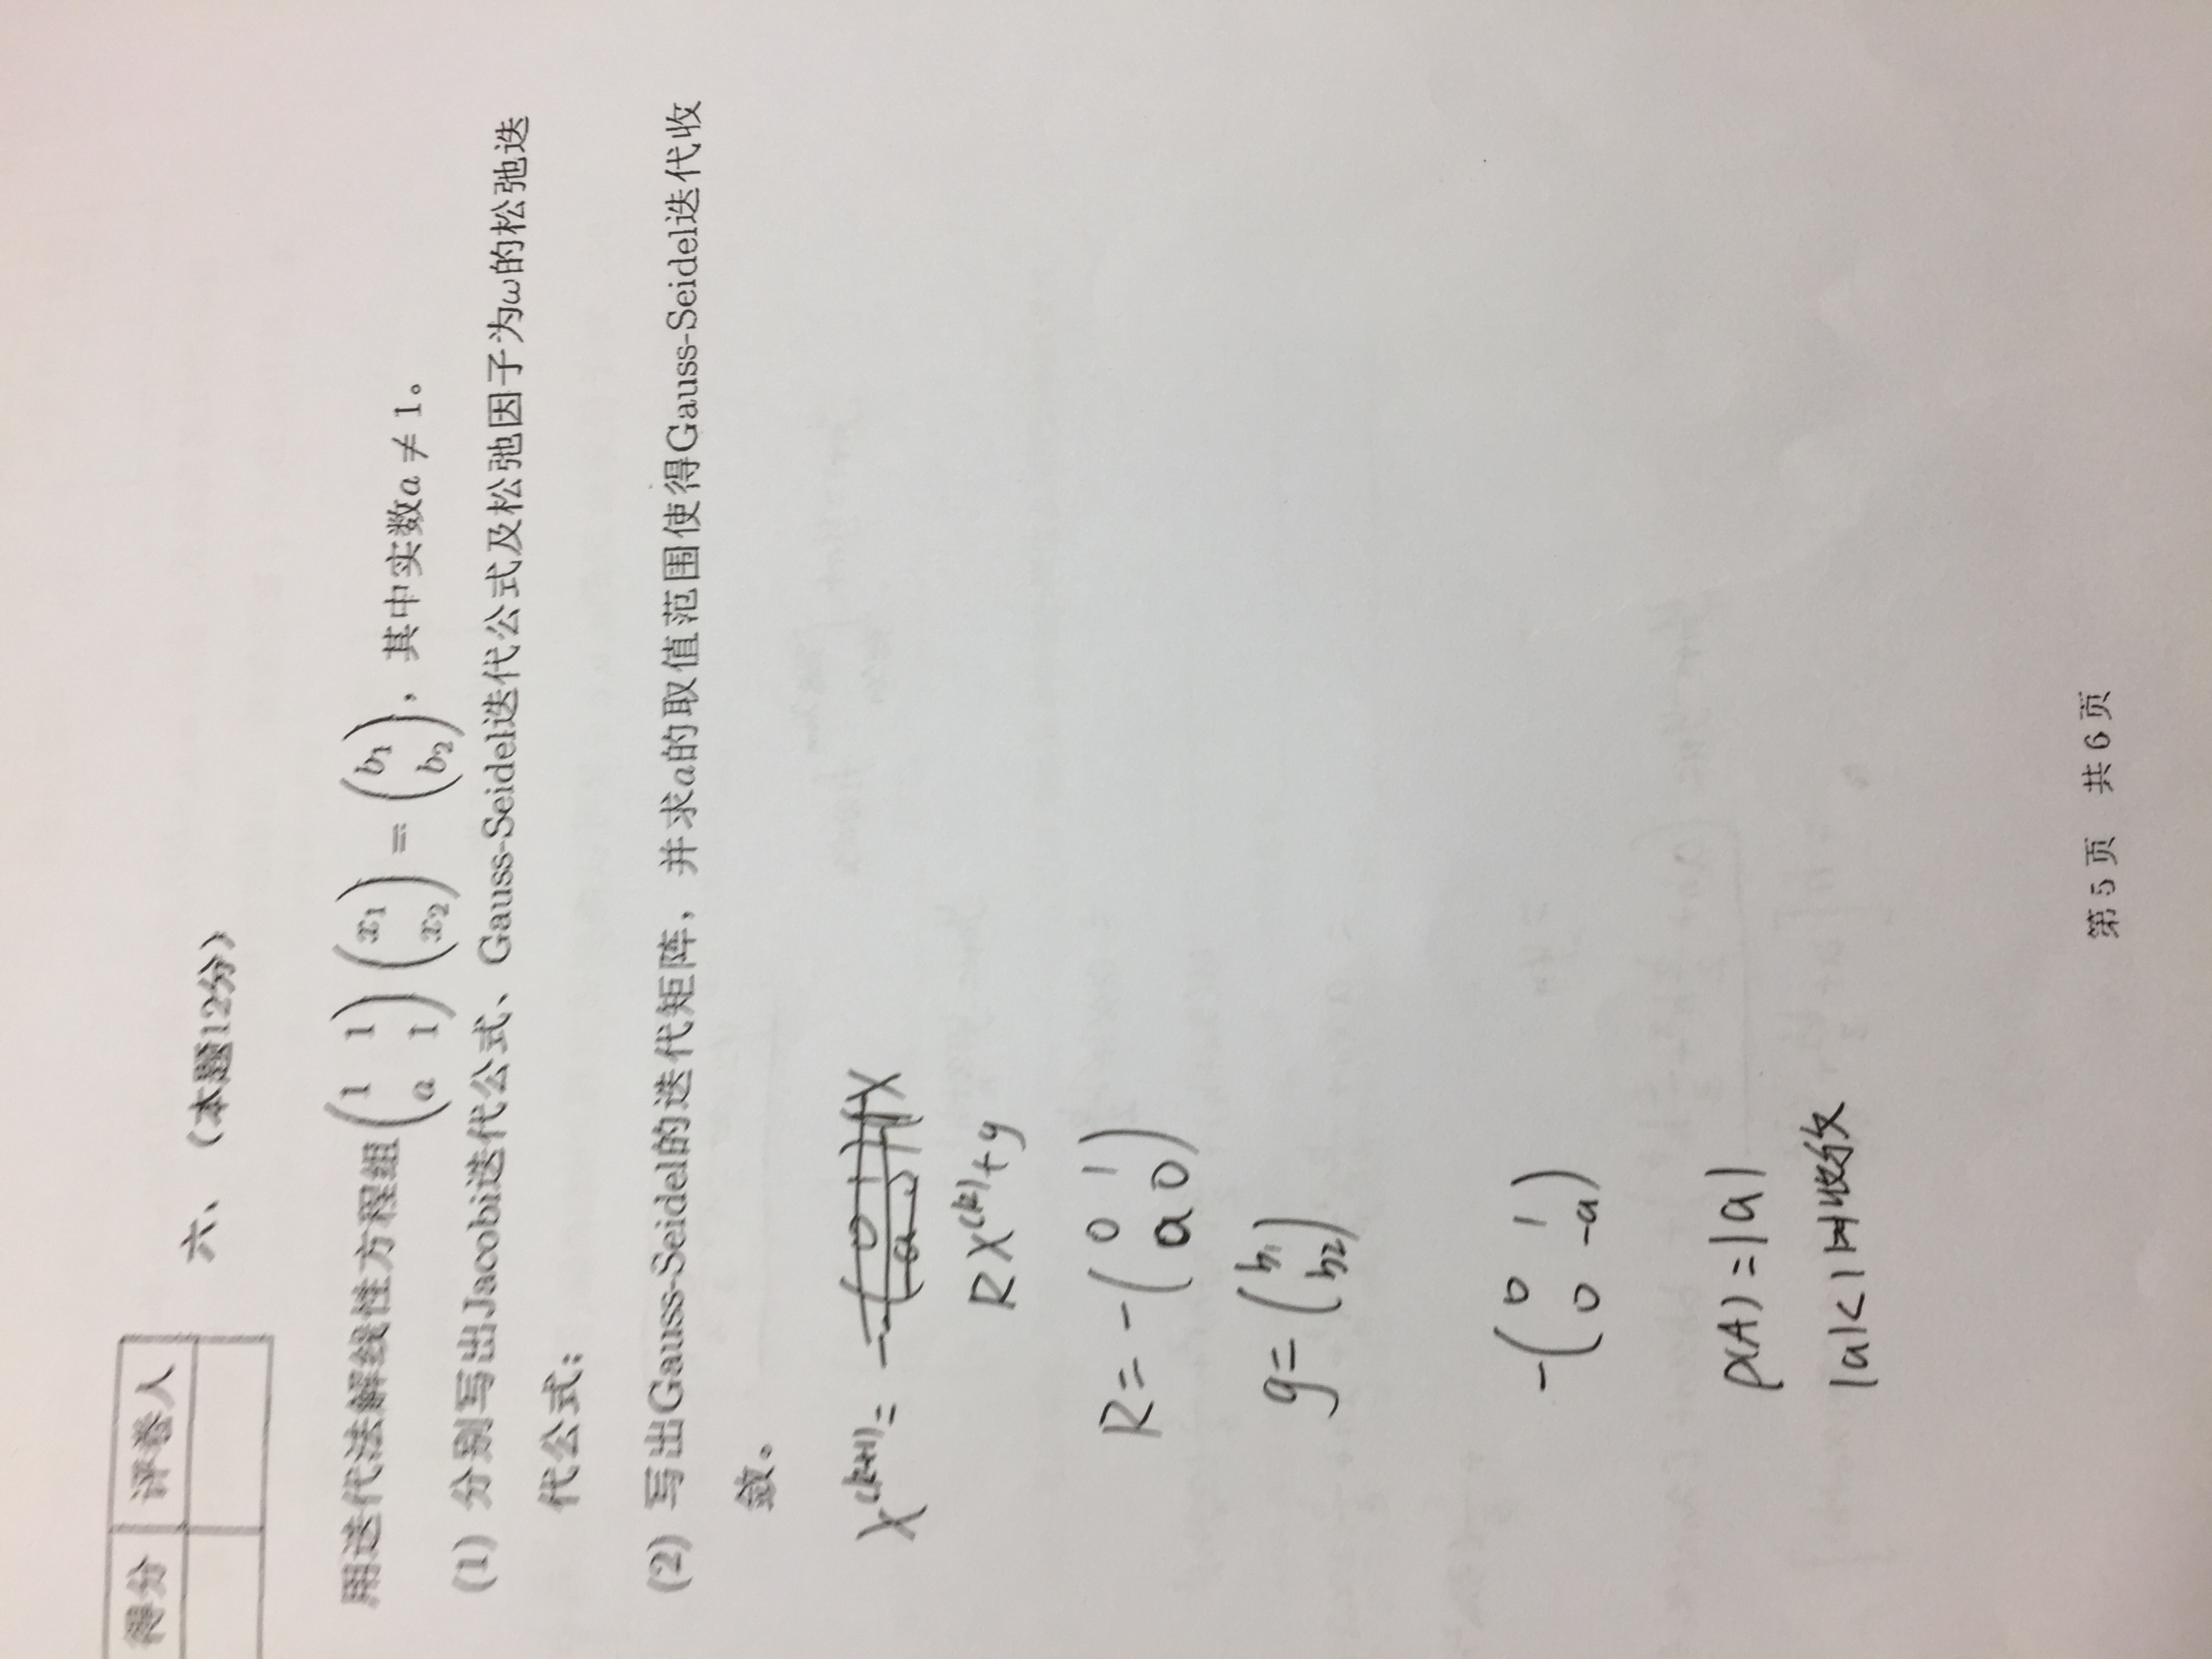 得分 评卷人
六、（本题12分）
用迭代法解线性方程组 (1 1; a 1) (x₁; x₂) = (b₁; b₂)，其中实数a ≠ 1。
(1) 分别写出Jacobi迭代公式、Gauss-Seidel迭代公式及松弛因子为ω的松弛迭
代公式；
(2) 写出Gauss-Seidel的迭代矩阵，并求a的取值范围使得Gauss-Seidel迭代收
敛。
X^(k+1) =
RX^(k)+g
R = -(0 1; a 0)
g = (b₁; b₂)
-(0 1; 0 -a)
ρ(A) = |a|
|a|<1时收敛
第 5 页 共 6 页